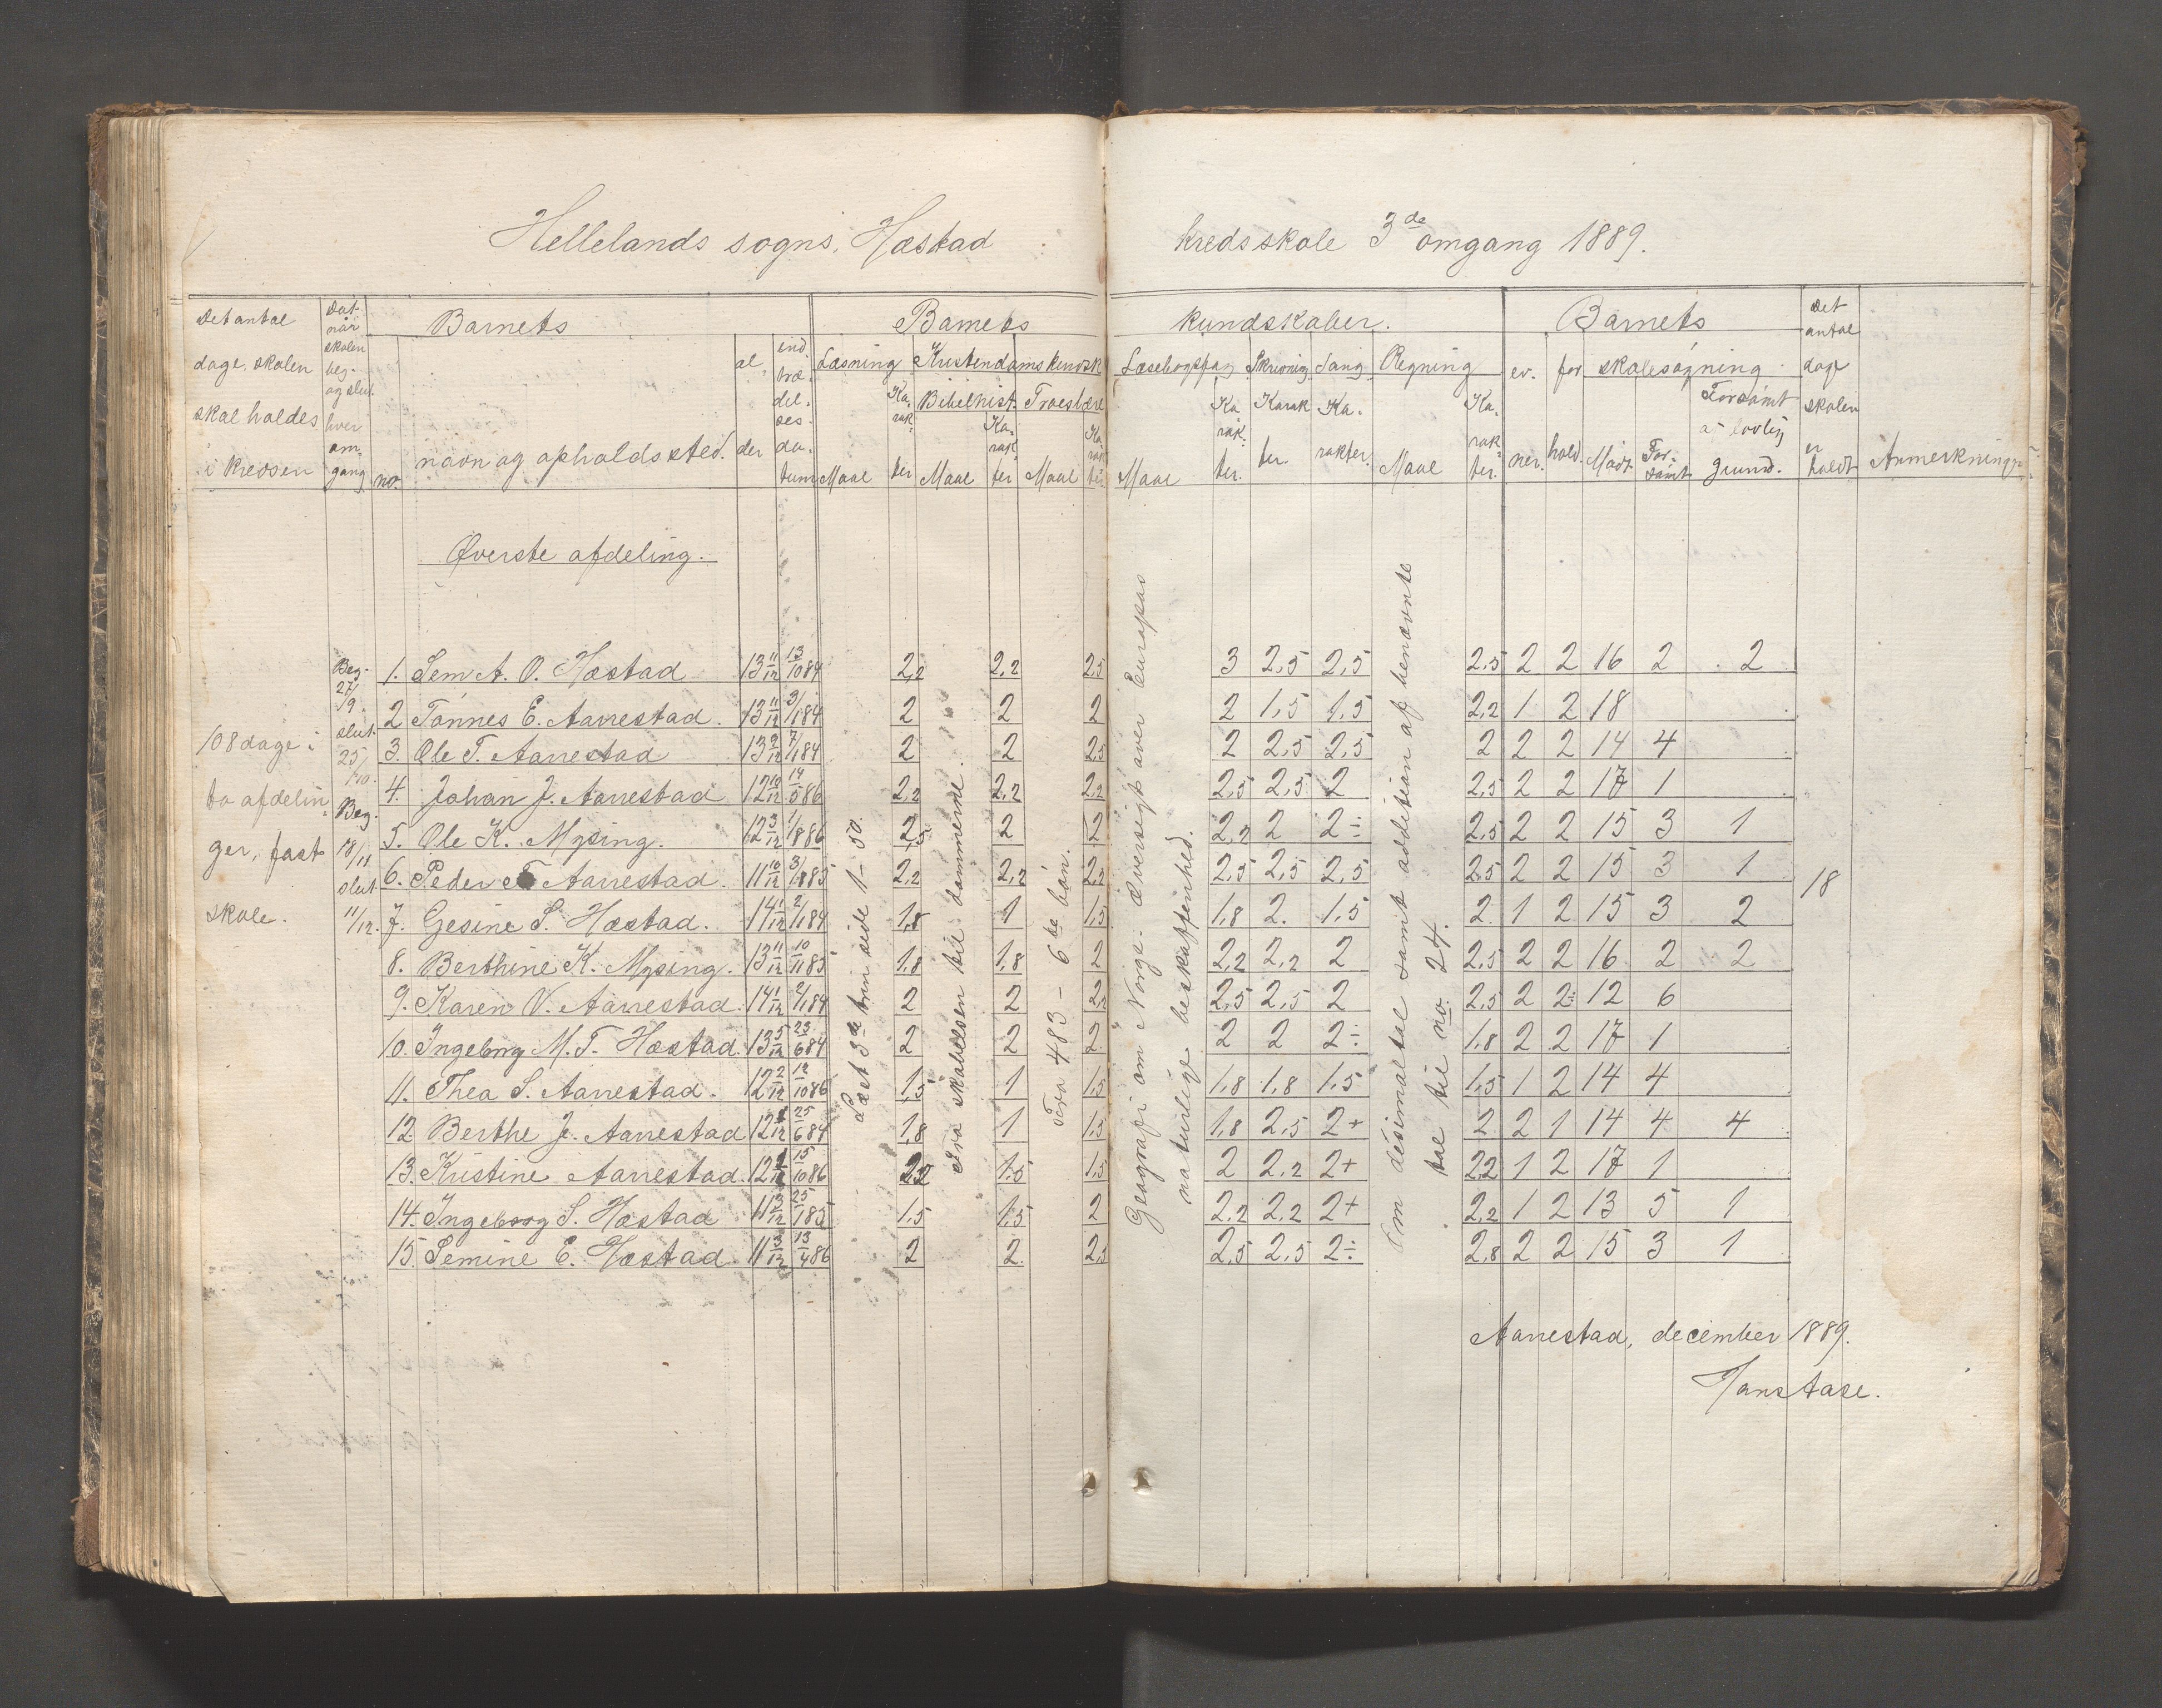 Hellelands sogns, Hæstad kredsskole 3de omgang 1889.
Det antal dage skolen skal holdes i kredsen
Dat. når skolen beg. og slut. hver omgang
Barnets
no. navn og opholdssted. al der ind træ del ses da tum
Barnets kundskaber.
Læsning Kristendomskundsk
Bibelhist. Troeslære
Maal Ka rak ter Maal Ka rak ter Maal Ka rak ter
Læsebogsfag Skrivning Sang Regning
Maal Ka rak ter. Karak ter. Ka rakter. Maal Ka rak ter.
Barnets
ev ner. for hold. skolesøgning
Mødt. For sømt Forsømt af lovlig grund.
Det antal dage skolen er holdt
Anmerkninger
Øverste afdeling.
108 dage i to afdelin ger, fast skole.
Beg. 27/9. slut. 25/10. Beg. 18/11 slut 11/12.
Læst 3de trin side 1-50.
Fra skabelsen til dommerne.
Fra 483 - 6te bøn.
Geografi om Norge. Oversigt over Europas
naturlige beskaffenhed.
Om desimaltal samt addition af benævnte
tal til no. 24.
1. Sem A. O. Hæstad 13 11/12 13/10 84 2,2 2,2 2,5 3 2,5 2,5 2,5 2 2 16 2 2
2 Tønnes E. Aarrestad. 13 11/12 3/1 84 2 2 2 2 1,5 1,5 2,2 1 2 18
3. Ole T. Aarrestad 13 9/12 7/1 84 2 2 2,5 2 2,5 2,5 2 2 2 14 4
4. Johan J. Aarrestad 12 10/12 14/5 86 2,2 2,2 2,2 2,5 2,5 2 2,5 2 2 17 1
5. Ole K. Mysing. 12 3/12 1/8 86 2,5 2 2 2,2 2 2÷ 2,5 2 2 15 3 1
6. Peder T Aarrestad. 11 10/12 3/8 85 2,2 2,2 2,2 2,5 2,5 2,5 2,5 2 2 15 3 1
18
7. Gesine S. Hæstad. 14 1/12 2/1 84 1,8 1 1,5 1,8 2. 1,5 2. 1 2 15 3 2
8. Berthine K. Mysing. 13 11/12 10/11 85 1,8 1,8 2 2,2 2,2 2 2,5 2 2 16 2 2
9. Karen O. Aarrestad. 14 1/12 2/1 84 2 2 2,2 2,5 2,5 2 2,5 2 2÷ 12 6
10. Ingeborg M. T. Hæstad. 13 5/12 23/6 84 2 2 2 2 2 2÷ 1,8 2 2 17 1
11. Thea S. Aarrestad. 12 2/12 12/10 86 1,5 1 1,5 1,8 1,8 1,5 1,5 1 2 14 4
12 Berthe J. Aarrestad 12 25/6 84 1,8 1 1,5 1,8 2,5 2+ 2 2 1 14 4 4
13. Kristine Aarrestad. 12 15/10 86 2,2 1,5 1,5 2 2,2 2+ 2,2 1 2 17 1
14. Ingeborg S. Hæstad 11 3/12 25/1 85 1,5 1,5 2 2,2 2,2 2+ 2,2 1 2 13 5 1
15. Semine E. Hæstad. 11 3/12 13/4 86 2 2 2,5 2,5 2,5 2÷ 2,8 2 2 15 3 1
Aarrestad, december 1889.